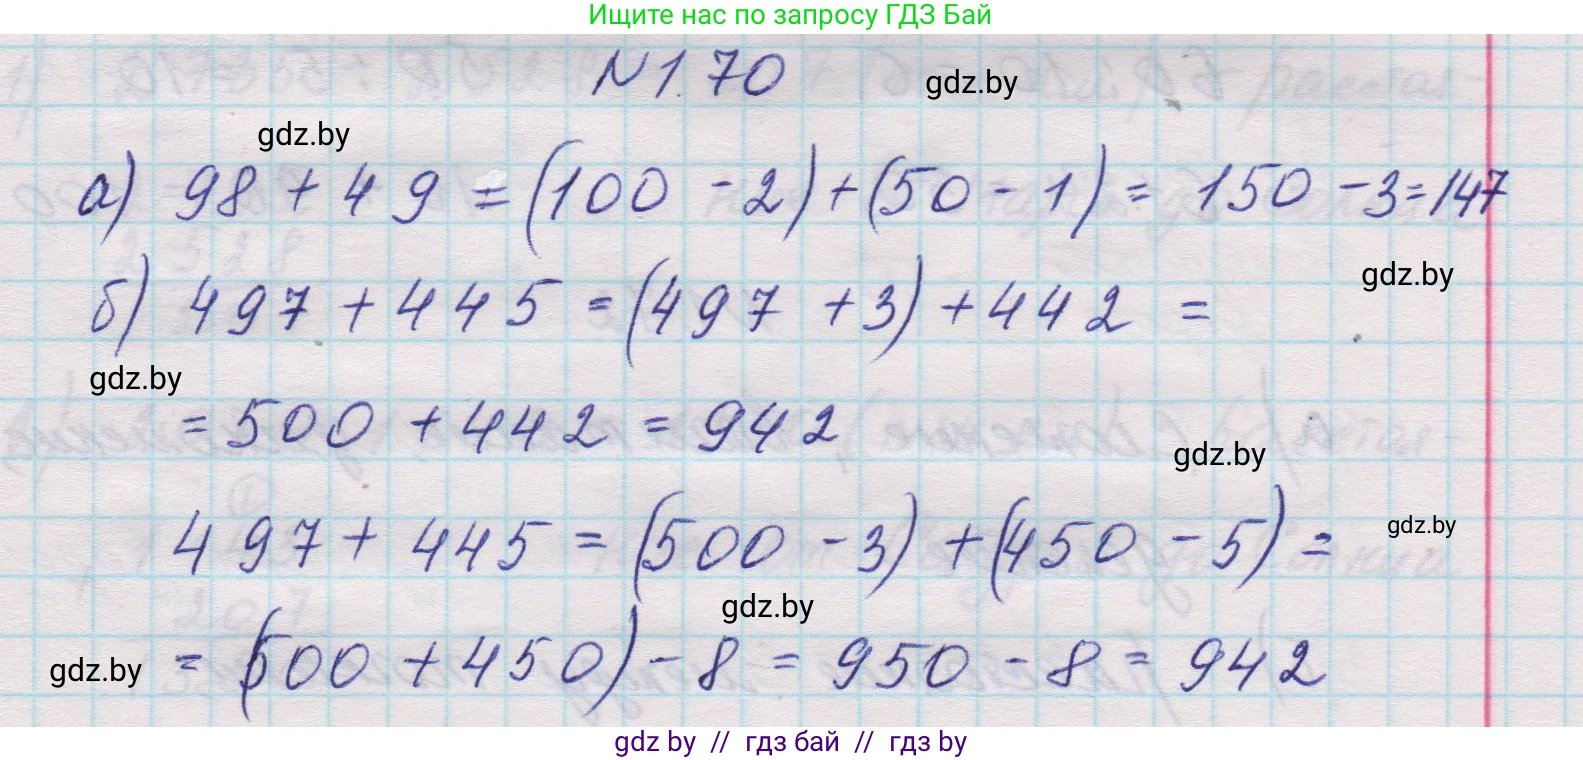 Ищите нас по запросу ГДЗ Бай
N 1.70
gdz.by
gdz.by
а) 98 + 49 = (100 - 2) + (50 - 1) = 150 - 3 = 147
б) 497 + 445 = (497 + 3) + 442 =
gdz.by
gdz.by
= 500 + 442 = 942
gdz.by
497 + 445 = (500 - 3) + (450 - 5) =
gdz.by
gdz.by
= (500 + 450) - 8 = 950 - 8 = 942
gdz.by
gdz by // гдз бай // гдз by